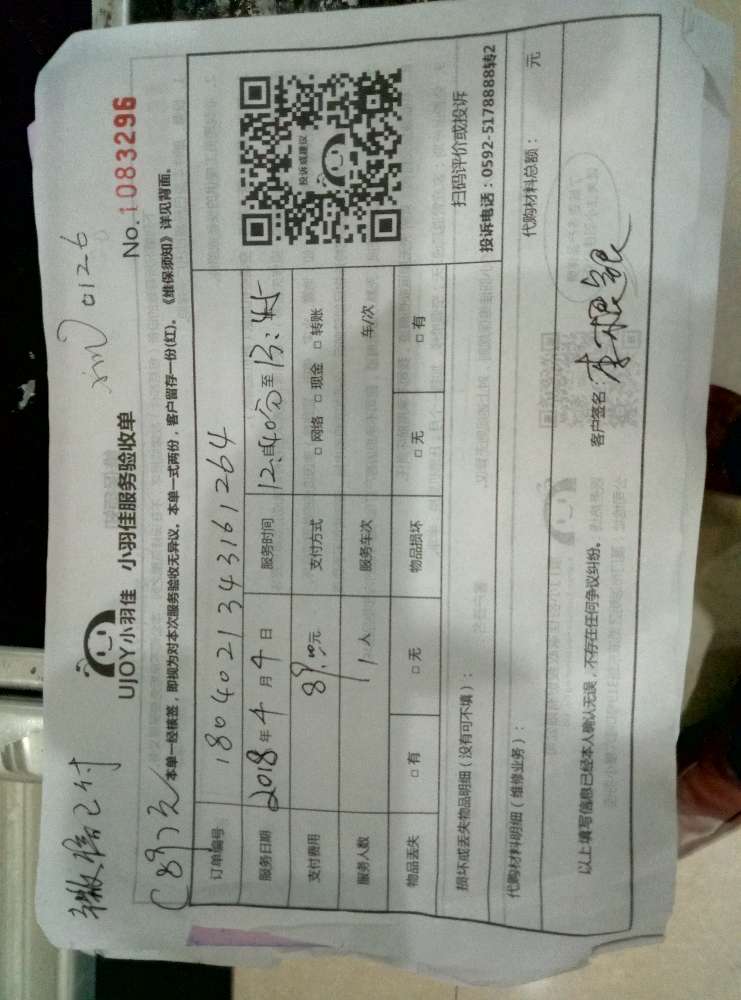 微信已付
(89元)
0126
UJOY小羽佳 小羽佳服务验收单
No.1083296
本单一经核签，即视为对本次服务验收无异议。本单一式两份，客户留存一份(红)。《维保须知》详见背面。
订单编号 1804021343161264
服务日期 2018年4月4日 服务时间 12:40分至13:45
支付费用 89.00元 支付方式 □网络 □现金 □转账
服务人数 1人 服务车次 车/次
物品丢失 □有 □无 物品损坏 □无 □有
投诉或建议
扫码评价或投诉
损坏或丢失物品明细（没有可不填）：
投诉电话：0592-5178888转2
代购材料明细（维修业务）： 代购材料总额： 元
以上填写信息已经本人确认无误，不存在任何争议纠纷。 客户签名：李根银